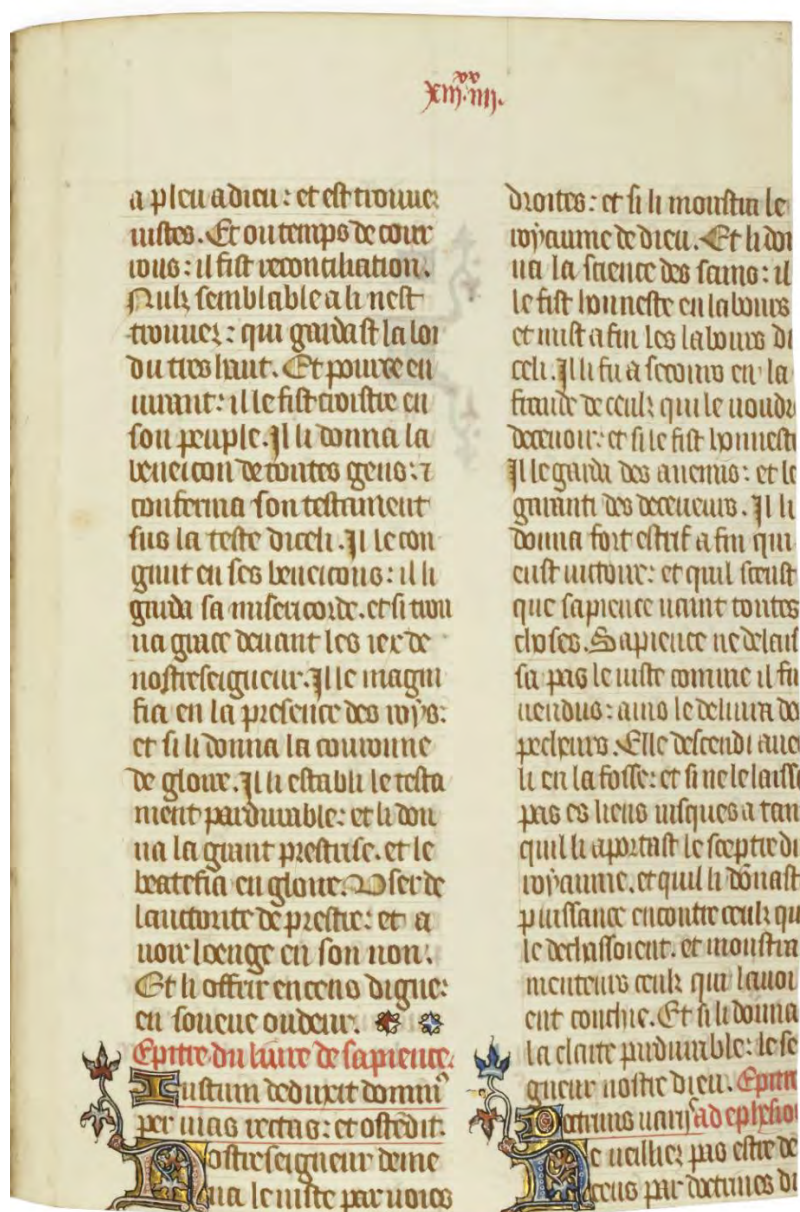 xiii.iiii.
vv
a pleu a dieu: et est trouuez
iustes. Et ou temps de cour
rous: il fist reconciliation.
Nulz semblable a li nest
trouuez: qui gardast la loi
du tres haut. Et pource en
iurant: il le fist croistre en
son peuple. Il li donna la
beneicon de toutes gens: ⁊
conferma son testament
sus la teste diceli. Il le con
gnut en ses beneicons: il li
garda sa misericorde. et si trou
ua grace deuant les iex de
nostreseigneur. Il le magni
fia en la presence des roys:
et si li donna la couronne
de gloire. Il li establi le testa
ment pardurable: et li don
na la grant prestrise. et le
beatefia en gloire. User de
lauctorite de prestre: et a
uoir loenge en son non.
Et li offrir encens digne:
en soueue oudeur.
Epitre du liure de sapience.
Iustum deduxit dominꝰ
per uias rectas: et ostēdit.
Nostreseigneur deme
na le iuste par uoies
droites: et si li monstra le
royaume de dieu. Et li don
na la science des sains: il
le fist honneste en labours
et mist a fin les labours di
celi. Il li fu a secours en la
fraude de ceulz qui le uoudr
deceuoir: et si le fist honneste
Il le garda des anemis: et le
garanti des deceueurs. Il li
donna fort estrif a fin qui
eust uictoire: et quil sceust
que sapience uaint toutes
choses. Sapience ne delais
sa pas le iuste comme il fu
uendus: ains le deliura des
pecheurs. Elle descendi auec
li en la fosse: et si ne le laissa
pas es liens iusques a tan
quil li aportast le sceptre du
royaume. et quil li dōnast
puissance encontre ceulz qui
le dechassoient. et monstra
menteurs ceulz qui lauoi
ent conchie. Et si li donna
la clarte pardurable: le sei
gneur nostre dieu. Epitre
Doctrinis uarijs ad ephesios
Ne ueilliez pas estre de
ceus par doctrines di